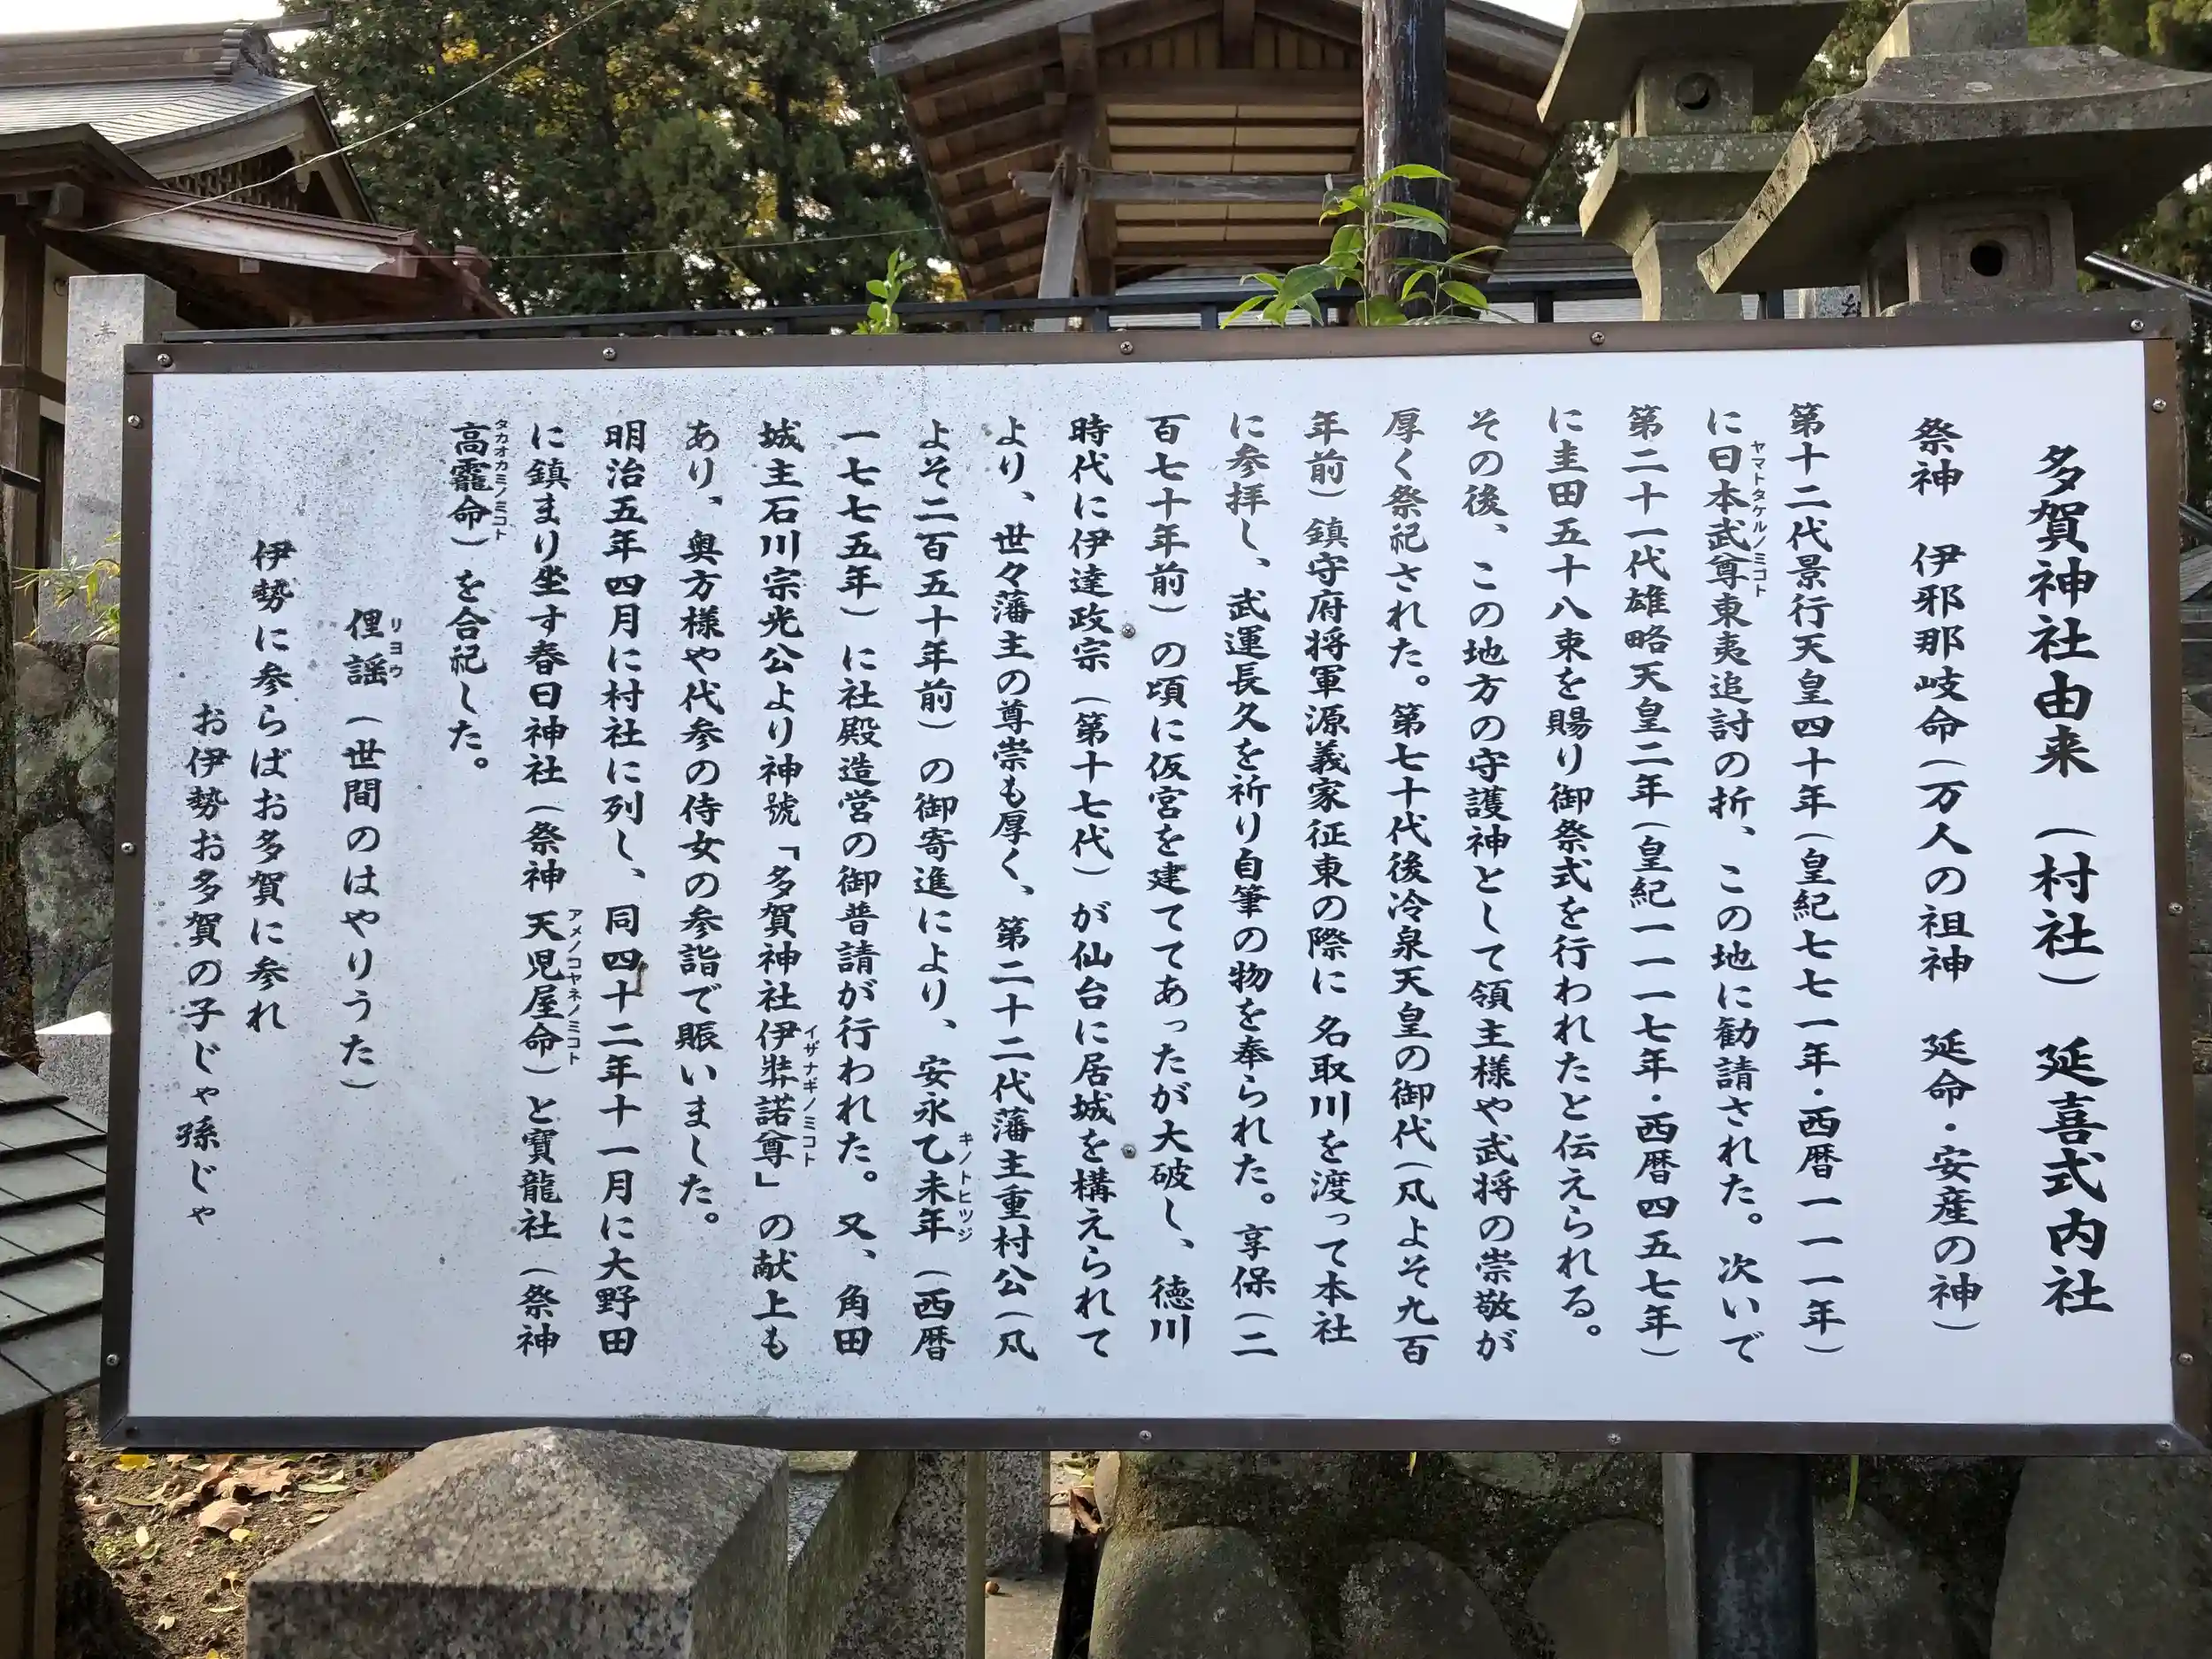 多賀神社由来（村社）延喜式内社
祭神　伊邪那岐命（万人の祖神　延命・安産の神）
第十二代景行天皇四十年（皇紀七七一年・西暦一一一年）
に日本武尊東夷追討の折、この地に勧請された。次いで
ヤマトタケルノミコト
第二十一代雄略天皇二年（皇紀一一一七年・西暦四五七年）
に圭田五十八束を賜り御祭式を行われたと伝えられる。
その後、この地方の守護神として領主様や武将の崇敬が
厚く祭祀された。第七十代後冷泉天皇の御代（凡よそ九百
年前）鎮守府将軍源義家征東の際に名取川を渡って本社
に参拝し、武運長久を祈り自筆の物を奉られた。享保（二
百七十年前）の頃に仮宮を建ててあったが大破し、徳川
時代に伊達政宗（第十七代）が仙台に居城を構えられて
より、世々藩主の尊崇も厚く、第二十二代藩主重村公（凡
よそ二百五十年前）の御寄進により、安永乙未年（西暦
キノトヒツジ
一七七五年）に社殿造営の御普請が行われた。又、角田
城主石川宗光公より神號「多賀神社伊弉諾尊」の献上も
イザナギノミコト
あり、奥方様や代参の侍女の参詣で賑いました。
明治五年四月に村社に列し、同四十二年十一月に大野田
に鎮まり坐す春日神社（祭神　天児屋命）と寶龍社（祭神
アメノコヤネノミコト
高龗命）を合祀した。
タカオカミノミコト
俚謡（世間のはやりうた）
リヨウ
伊勢に参らばお多賀に参れ
お伊勢お多賀の子じゃ孫じゃ